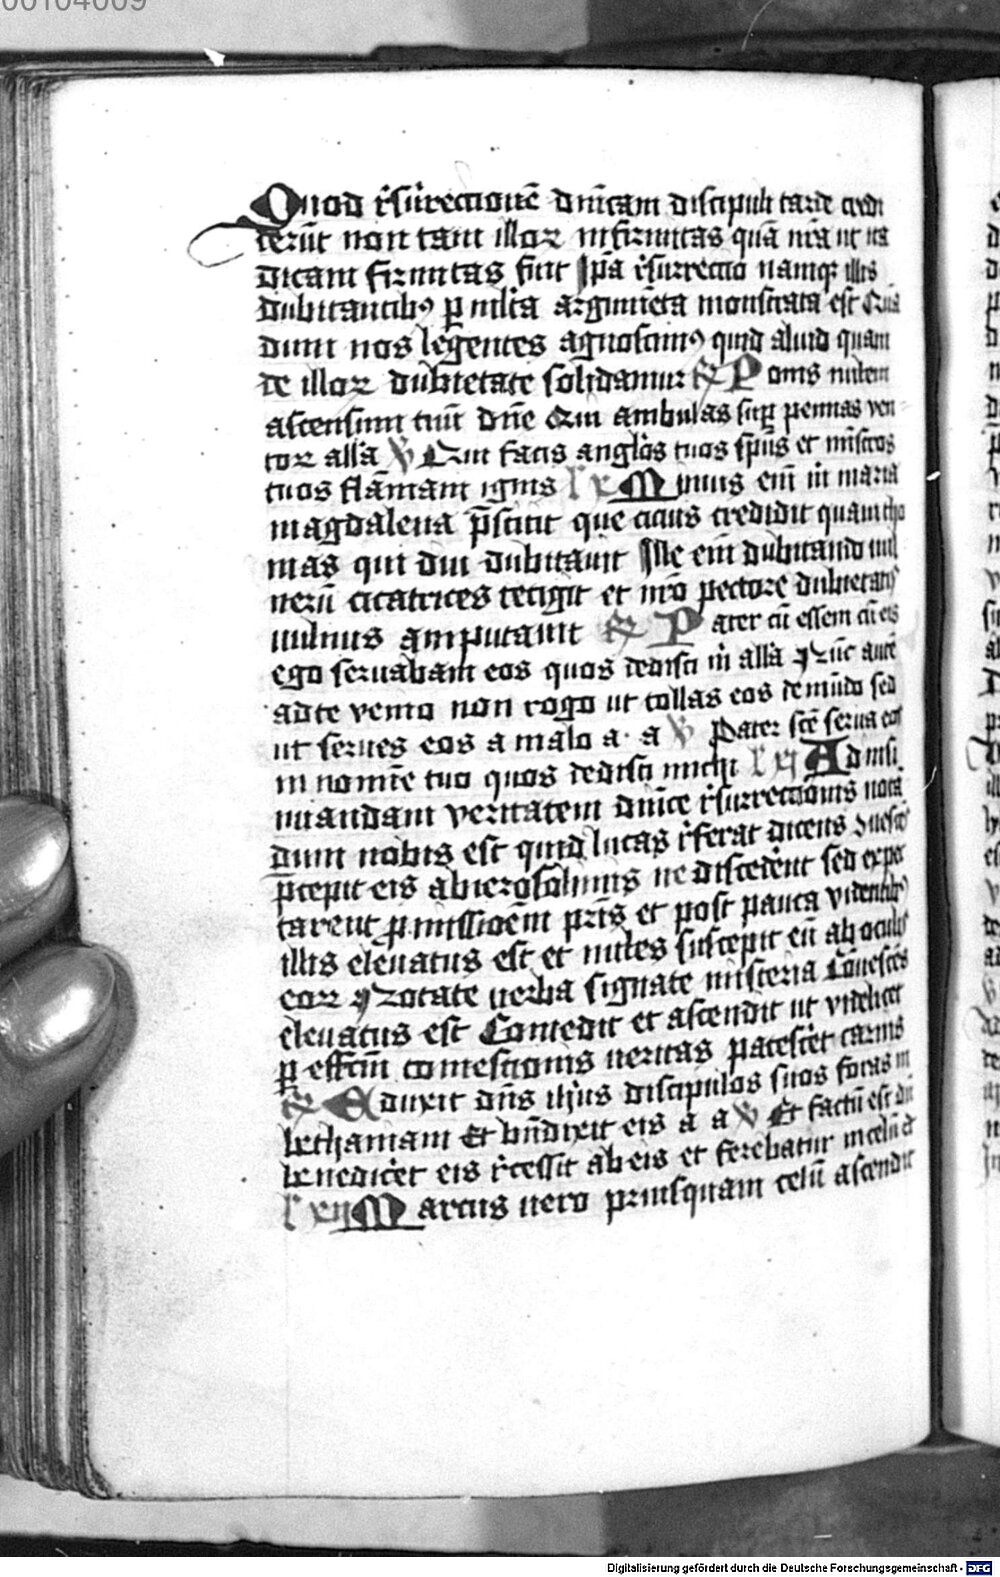 00104009
Quod r̄surrectionē dn̄icam discipuli tarde credi
derūt non tam illoꝝ infirmitas quā nr̄a ut ita
dicam firmitas fuit Ip̄a r̄surrectio namqꝫ illis
dubitantibꝰ ꝑ multa argumēta monstrata est Que
dum nos legentes agnoscimꝰ quid aliud quam
de illoꝝ dubietate solidamur ℟ Ponis nubem
ascensum tuū dn̄e Qui ambulas suꝑ pennas ven
toꝝ all̄a ℣ Qui facis angl̄os tuos sp̄us et mīstros
tuos flāmam ignis l̄ x Minus em̄ m̄ maria
magdalena p̄stitit que citius credidit quam tho
mas qui diu dubitauit Ille em̄ dubitando uul
nerū cicatrices tetigit et nr̄o pectore dubietatis
uulnus amputauit ℟ Pater cū essem cū eis
ego seruabam eos quos dedisti m̄ all̄a Nūc autē
ad te venio non rogo ut tollas eos de mūdo sed
ut serues eos a malo a a ℣ Pater sc̄e serua eos
in nomīe tuo quos dedisti michi l̄ xi Ad insi
nuandam veritatem dn̄ice r̄surrectionis notā
dum nobis est quid lucas r̄ferat dicens Cōuescēs
p̄cepit eis ab ierosolimis ne discederēt sed expec
tarent ꝓmissioēm pr̄is et post pauca videntibꝰ
illis eleuatus est et nubes suscepit eū ab oculis
eoꝝ Notate uerba signate misteria Cōuescēs
eleuatus est Comedit et ascendit ut videlicet
ꝑ effcm̄ comestionis ueritas patescēt carnis
℟ Eduxit dn̄s ih̄us discipulos suos foras in
bethaniam Et bn̄dixit eis a a ℣ Et factū est dū
benediceret eis r̄cessit ab eis et ferebatur in celū a
l̄ xii Marcus uero priusquam celū ascendit
Digitalisierung gefördert durch die Deutsche Forschungsgemeinschaft - DFG